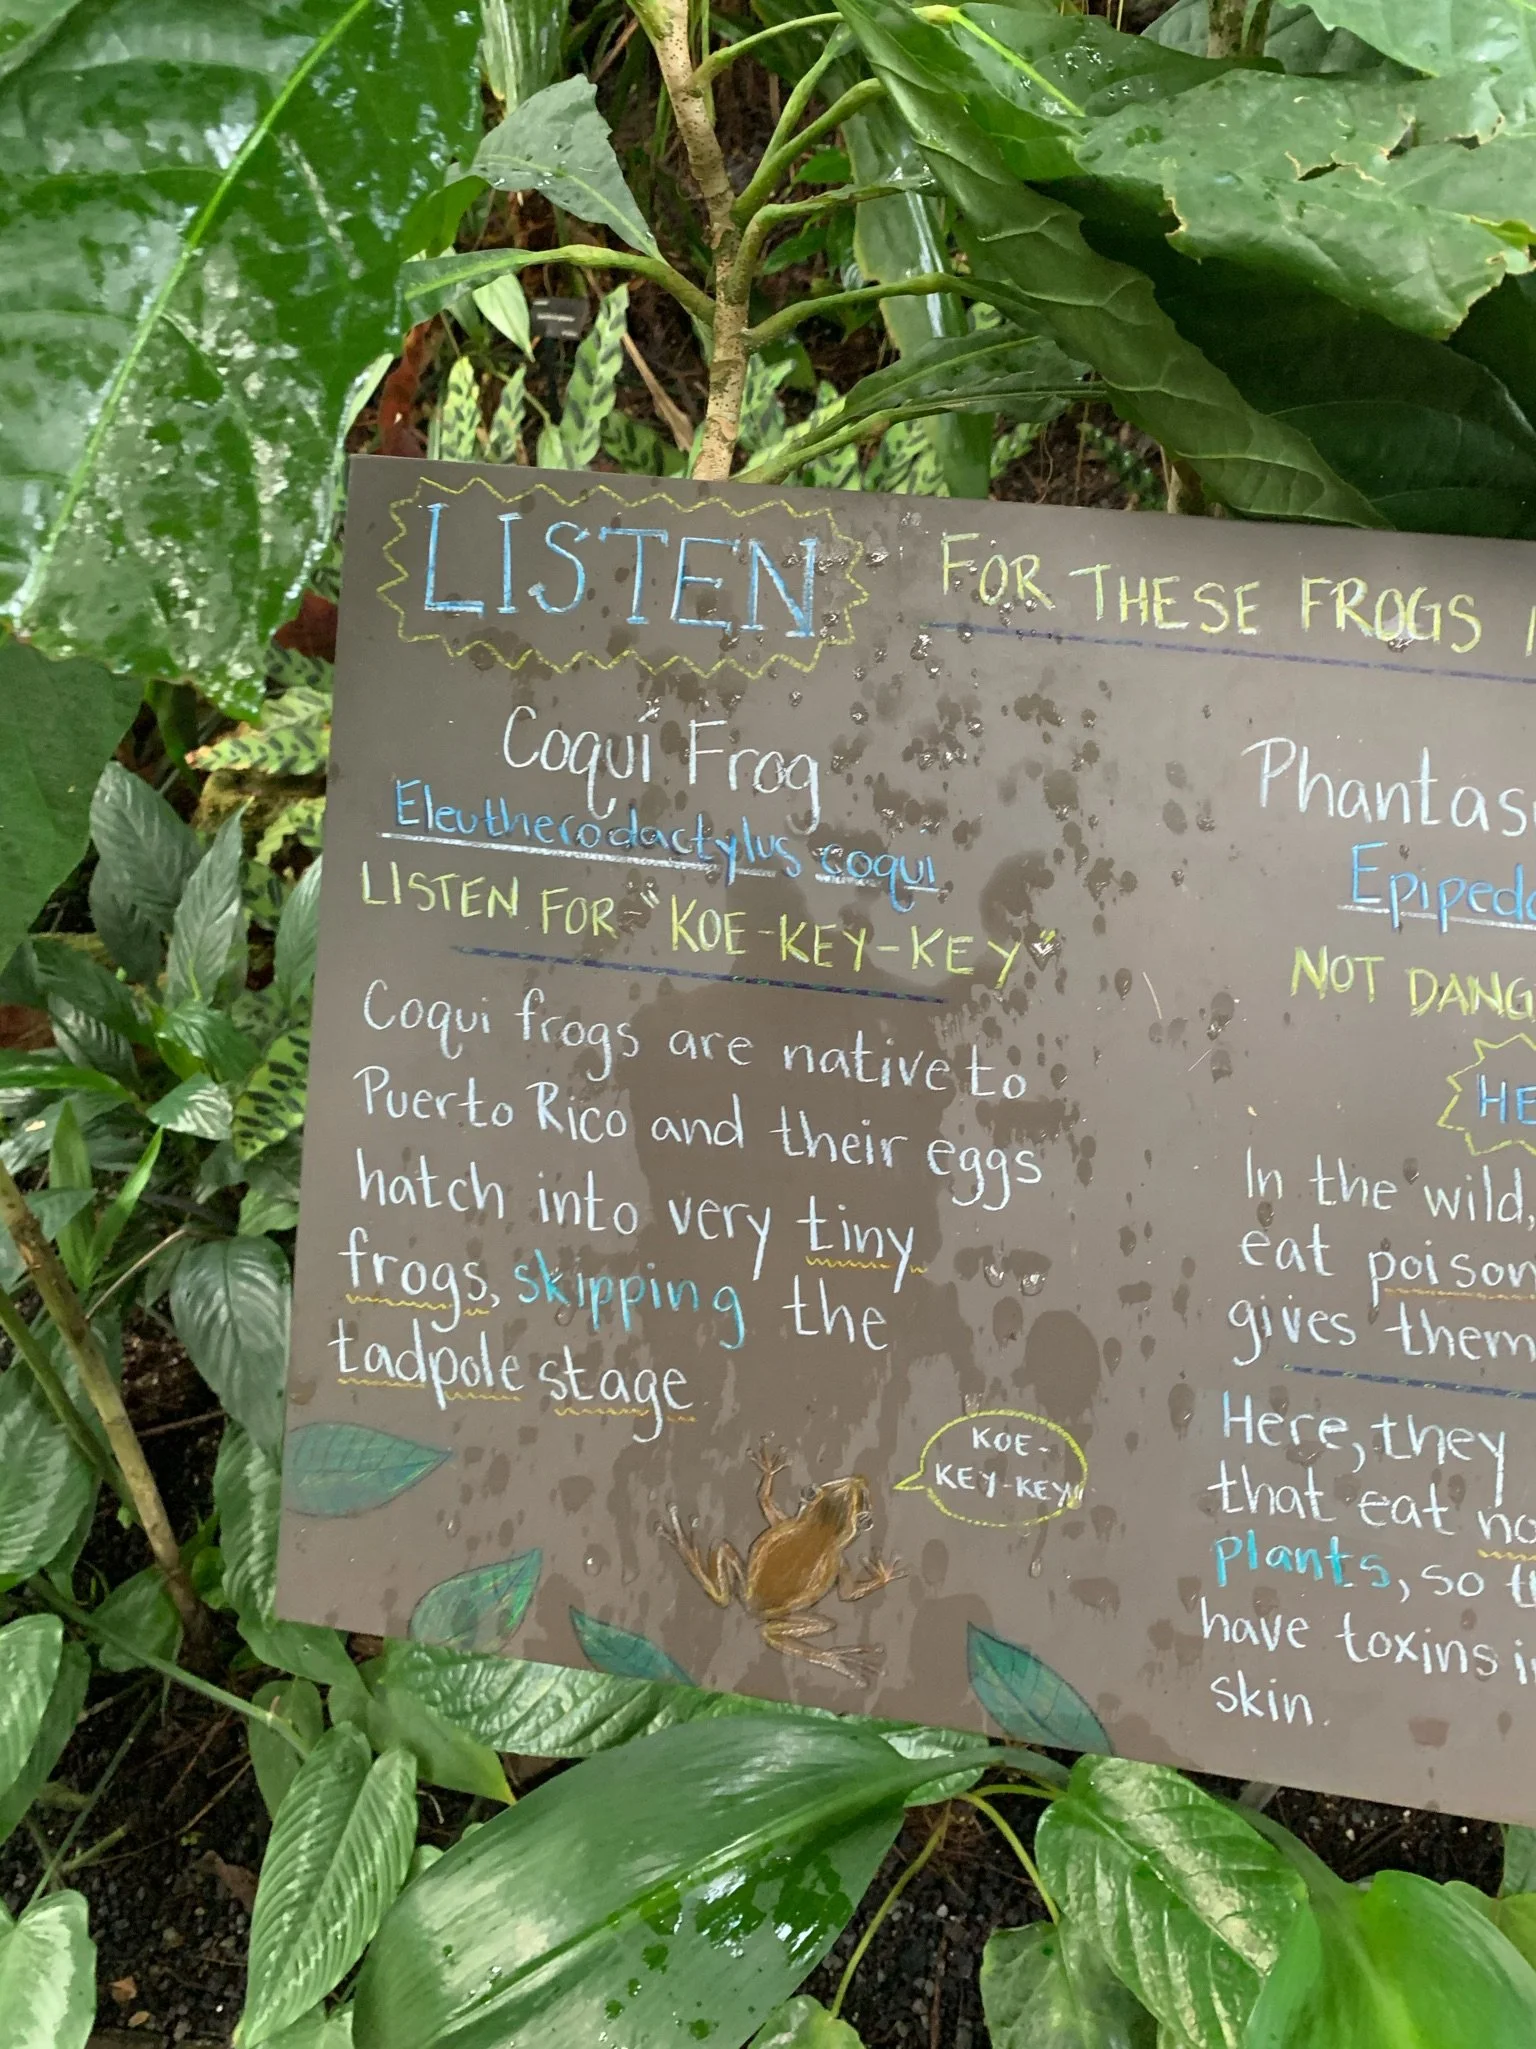 LISTEN FOR THESE FROGS
Coquí Frog
Eleutherodactylus coqui
LISTEN FOR "KOE-KEY-KEY"
Coqui frogs are native to
Puerto Rico and their eggs
hatch into very tiny
frogs, skipping the
tadpole stage
KOE-
KEY-KEY
Phantas
Epiped
NOT DANG
HE
In the wild,
eat poison
gives them
Here, they
that eat no
plants, so t
have toxins i
skin.